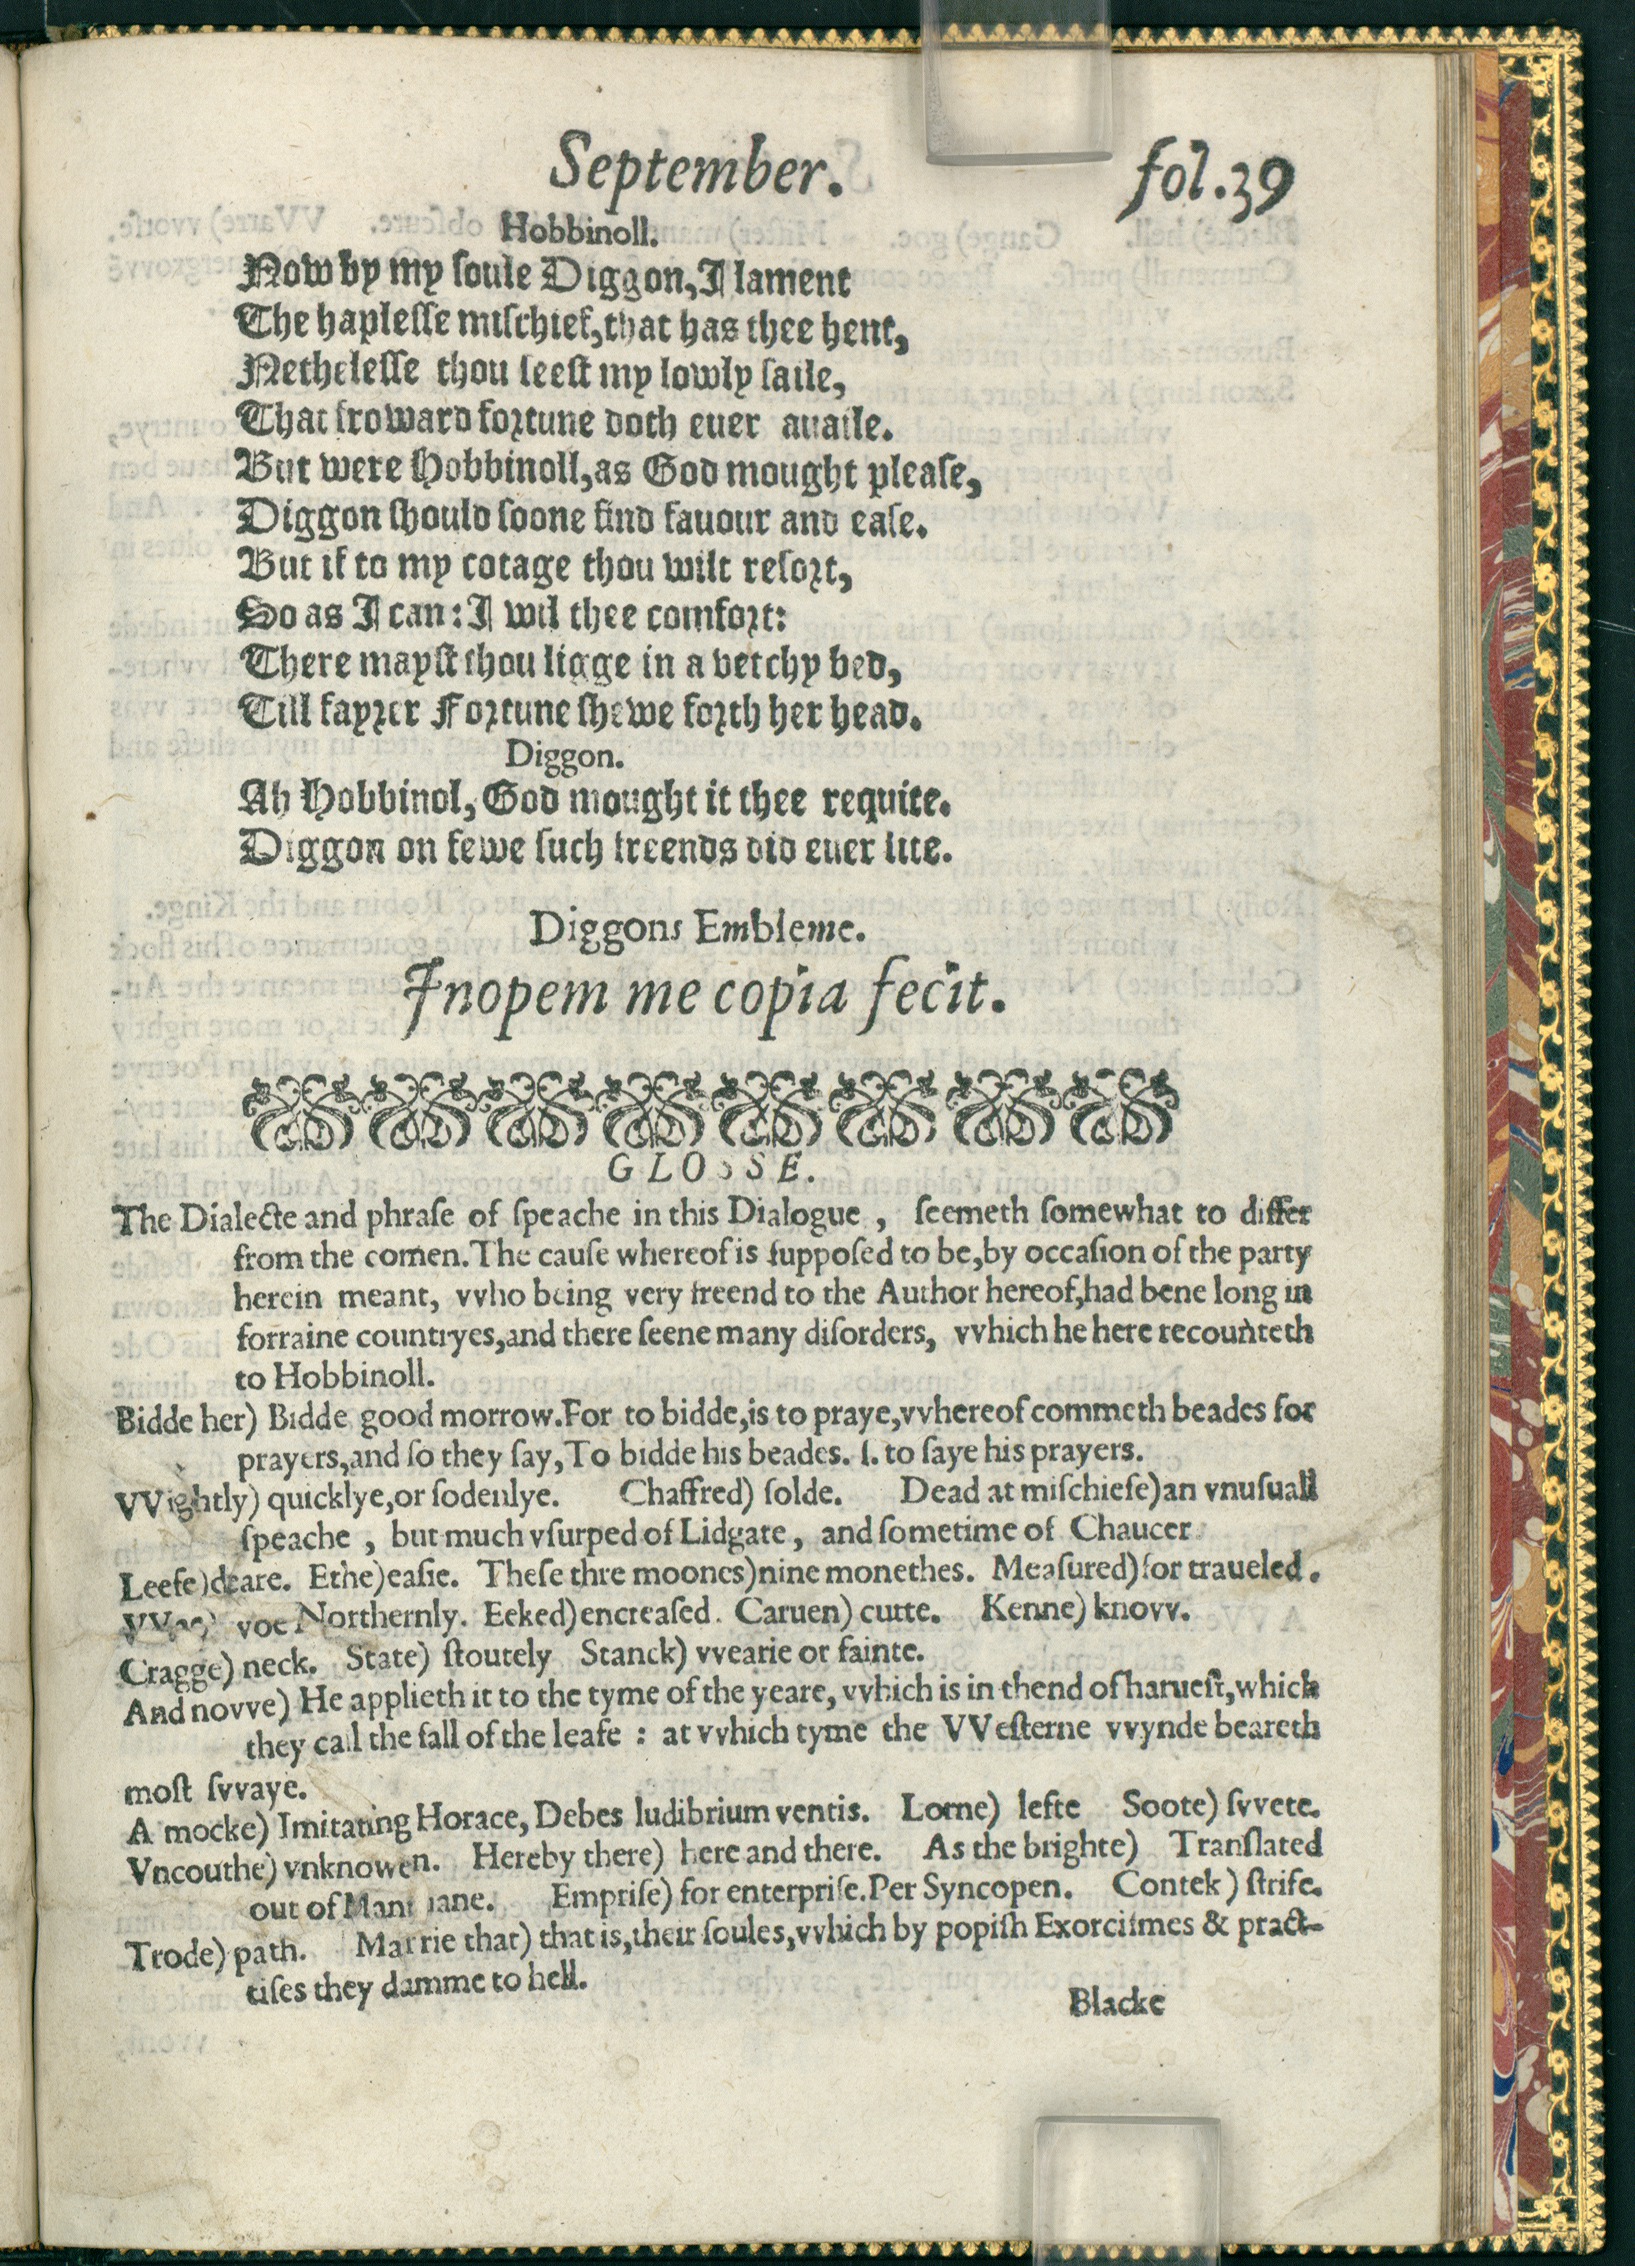 September.
fol.39
Hobbinoll.
Now by my ſoule Diggon, I lament
The hapleſſe miſchief, that has thee hent,
Netheleſſe thou ſeeſt my lowly ſaile,
That froward foꝛtune doth euer auaile.
But were Hobbinoll, as God mought pleaſe,
Diggon ſhould ſoone find fauour and eaſe.
But if to my cotage thou wilt reſoꝛt,
So as I can: I wil thee comfoꝛt:
There mayſt thou ligge in a vetchy bed,
Till fayꝛer Foꝛtune ſhewe foꝛth her head.
Diggon.
Ah Hobbinol, God mought it thee requite.
Diggon on fewe ſuch freends did euer lite.
Diggons Embleme.
Inopem me copia fecit.
GLOSSE.
The Dialecte and phraſe of ſpeache in this Dialogue , ſeemeth ſomewhat to differ
from the comen. The cauſe whereof is ſuppoſed to be, by occaſion of the party
herein meant, vvho being very freend to the Author hereof, had bene long in
forraine countryes, and there ſeene many diſorders, vvhich he here recounteth
to Hobbinoll.
Bidde her) Bidde good morrow. For to bidde, is to praye, vvhereof commeth beades for
prayers, and ſo they ſay, To bidde his beades. ſ. to ſaye his prayers.
VVightly) quicklye, or ſodenlye. Chaffred) ſolde. Dead at miſchiefe) an vnuſuall
ſpeache , but much vſurped of Lidgate, and ſometime of Chaucer
Leefe) deare. Ethe) eaſie. Theſe thre moones) nine monethes. Meaſured) for traueled.
voe Northernly. Eeked) encreaſed. Caruen) cutte. Kenne) knovv.
Cragge) neck. State) ſtoutely Stanck) vvearie or fainte.
And novve) He applieth it to the tyme of the yeare, vvhich is in thend of harueſt, which
they call the fall of the leafe : at vvhich tyme the VVeſterne vvynde beareth
moſt ſvvaye.
A mocke) Imitating Horace, Debes ludibrium ventis. Lorne) lefte Soote) ſvvete.
Vncouthe) vnknowen. Hereby there) here and there. As the brighte) Tranſlated
out of Mantuane. Empriſe) for enterpriſe. Per Syncopen. Contek) ſtrife.
Trode) path. Marrie that) that is, their ſoules, vvhich by popiſh Exorciſmes & pract-
tiſes they damme to hell.
Blacke